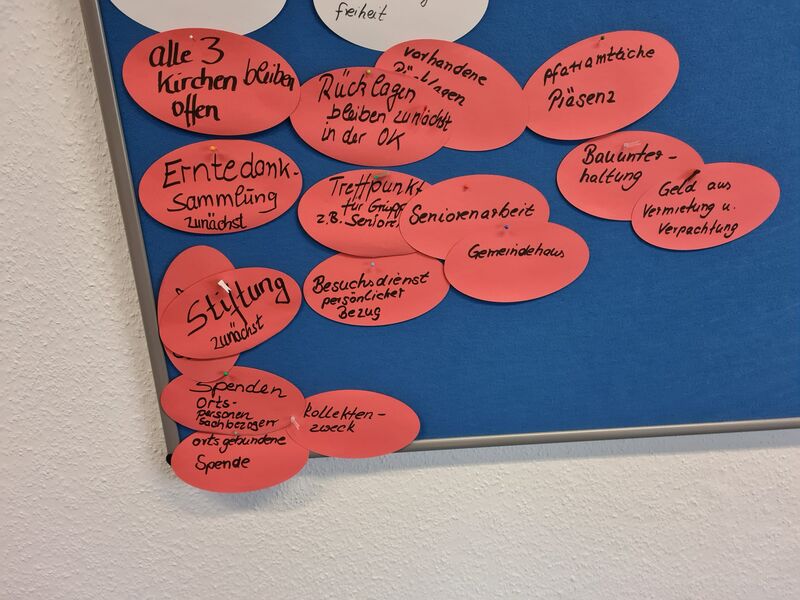 freiheit
alle 3
Kirchen bleiben
offen
Rücklagen
bleiben zunächst
in der OK
vorhandene
Pfarramtliche
Präsenz
Erntedank-
Sammlung
zunächst
Treffpunkt
für Grupp
z.B. Senioren
Seniorenarbeit
Gemeindehaus
Bauunter-
haltung
Geld aus
Vermietung u.
Verpachtung
Stiftung
zunächst
Besuchsdienst
persönlicher
Bezug
Spenden
Orts-
personen
sachbezogen
Kollekten-
zweck
ortsgebundene
Spende